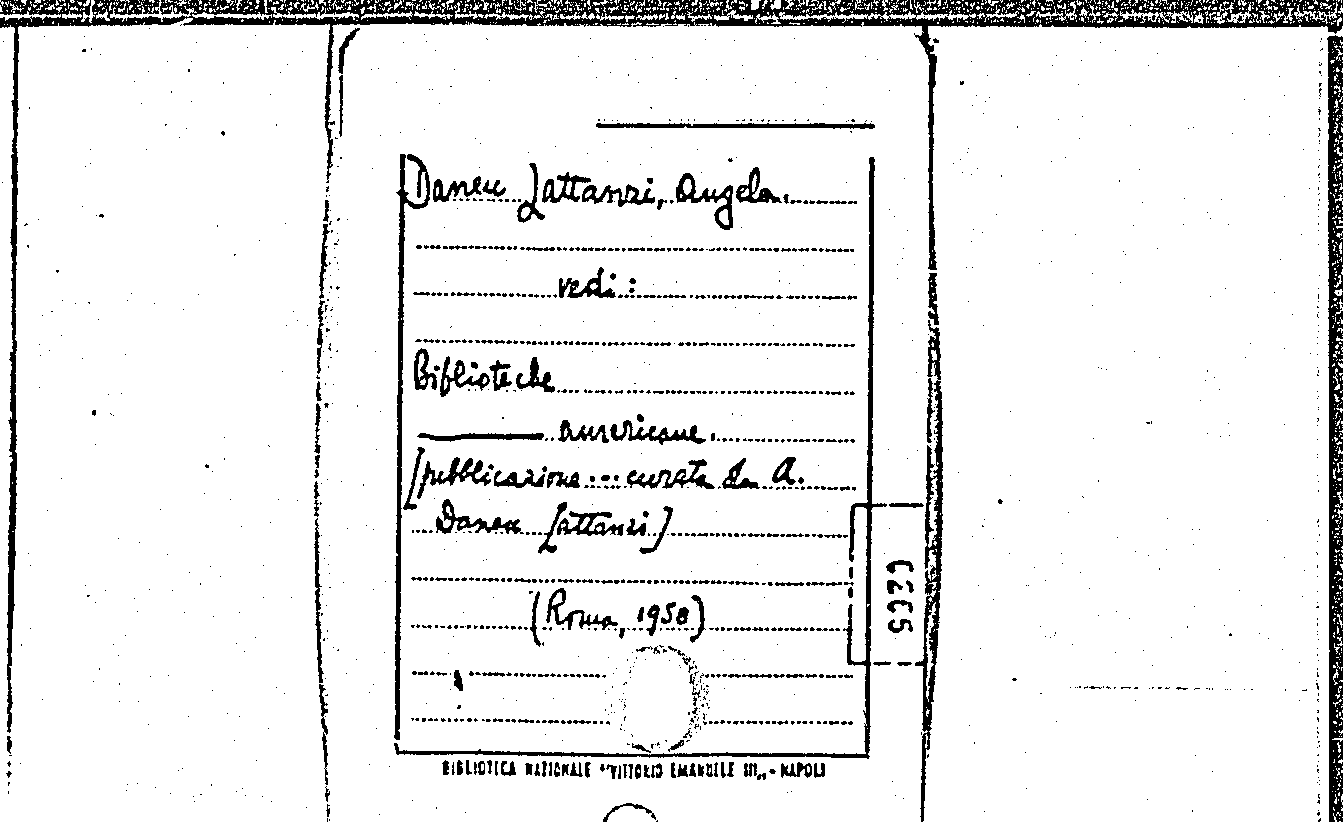 Daneu Lattanzi, Angela.
vedi:
Biblioteche
——— americane.
[pubblicazione... curata da A.
Daneu Lattanzi]
(Roma, 1958)
BIBLIOTECA NAZIONALE "VITTORIO EMANUELE III" - NAPOLI